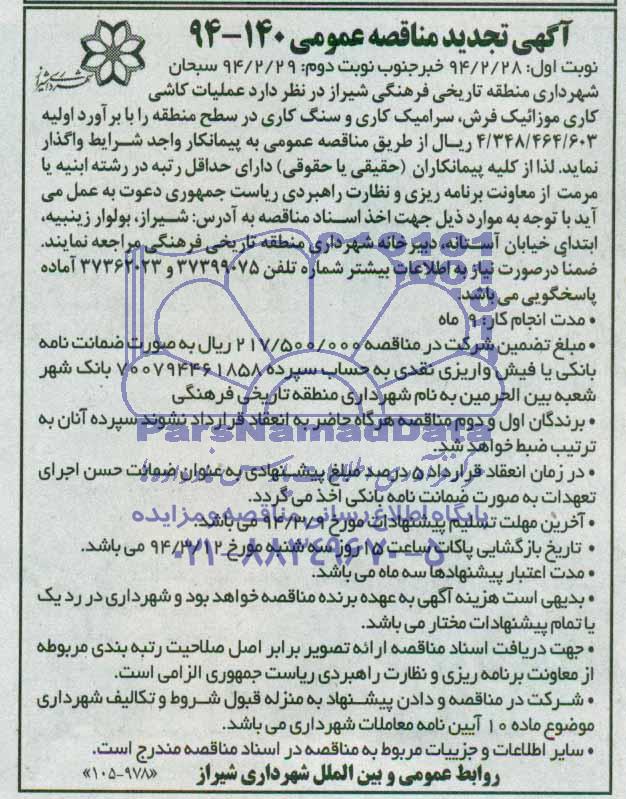 آگهی تجدید مناقصه عمومی ۱۴۰-۹۴
نوبت اول: ۹۴/۲/۲۸ خبرجنوب نوبت دوم: ۹۴/۲/۲۹ سبحان
شهرداری منطقه تاریخی فرهنگی شیراز در نظر دارد عملیات کاشی
کاری موزائیک فرش، سرامیک کاری و سنگ کاری در سطح منطقه را با برآورد اولیه
۴/۳۴۸/۴۶۴/۶۰۳ ریال از طریق مناقصه عمومی به پیمانکار واجد شرایط واگذار
نماید. لذا از کلیه پیمانکاران (حقیقی یا حقوقی) دارای حداقل رتبه در رشته ابنیه یا
مرمت از معاونت برنامه ریزی و نظارت راهبردی ریاست جمهوری دعوت به عمل می
آید با توجه به موارد ذیل جهت اخذ اسناد مناقصه به آدرس: شیراز، بولوار زینبیه،
ابتدای خیابان آستانه، دبیرخانه شهرداری منطقه تاریخی فرهنگی مراجعه نمایند.
ضمناً درصورت نیاز به اطلاعات بیشتر شماره تلفن ۳۷۳۹۹۰۷۵ و ۳۷۳۶۲۰۲۳ آماده
پاسخگویی می باشد.
• مدت انجام کار: ۹ ماه
• مبلغ تضمین شرکت در مناقصه ۲۱۷/۵۰۰/۰۰۰ ریال به صورت ضمانت نامه
بانکی یا فیش واریزی نقدی به حساب سپرده ۷۰۰۷۹۴۴۶۱۸۵۸ بانک شهر
شعبه بین الحرمین به نام شهرداری منطقه تاریخی فرهنگی
• برندگان اول و دوم مناقصه هرگاه حاضر به انعقاد قرارداد نشوند سپرده آنان به
ترتیب ضبط خواهد شد.
ParsNamadData
• در زمان انعقاد قرارداد ۵ درصد مبلغ پیشنهادی به عنوان ضمانت حسن اجرای
تعهدات به صورت ضمانت نامه بانکی اخذ می گردد.
پایگاه اطلاع رسانی مناقصه و مزایده
• آخرین مهلت تسلیم پیشنهادات مورخ ۹۴/۳/۹ می باشد.
• تاریخ بازگشایی پاکات ساعت ۱۵ روز سه شنبه مورخ ۹۴/۳/۱۲ می باشد.
۰۲۱-۸۸۳۴۹۶۷۰-۵
• مدت اعتبار پیشنهادها سه ماه می باشد.
• بدیهی است هزینه آگهی به عهده برنده مناقصه خواهد بود و شهرداری در رد یک
یا تمام پیشنهادات مختار می باشد.
• جهت دریافت اسناد مناقصه ارائه تصویر برابر اصل صلاحیت رتبه بندی مربوطه
از معاونت برنامه ریزی و نظارت راهبردی ریاست جمهوری الزامی است.
• شرکت در مناقصه و دادن پیشنهاد به منزله قبول شروط و تکالیف شهرداری
موضوع ماده ۱۰ آیین نامه معاملات شهرداری می باشد.
• سایر اطلاعات و جزییات مربوط به مناقصه در اسناد مناقصه مندرج است.
روابط عمومی و بین الملل شهرداری شیراز
«۱۰۵-۹۷۸»